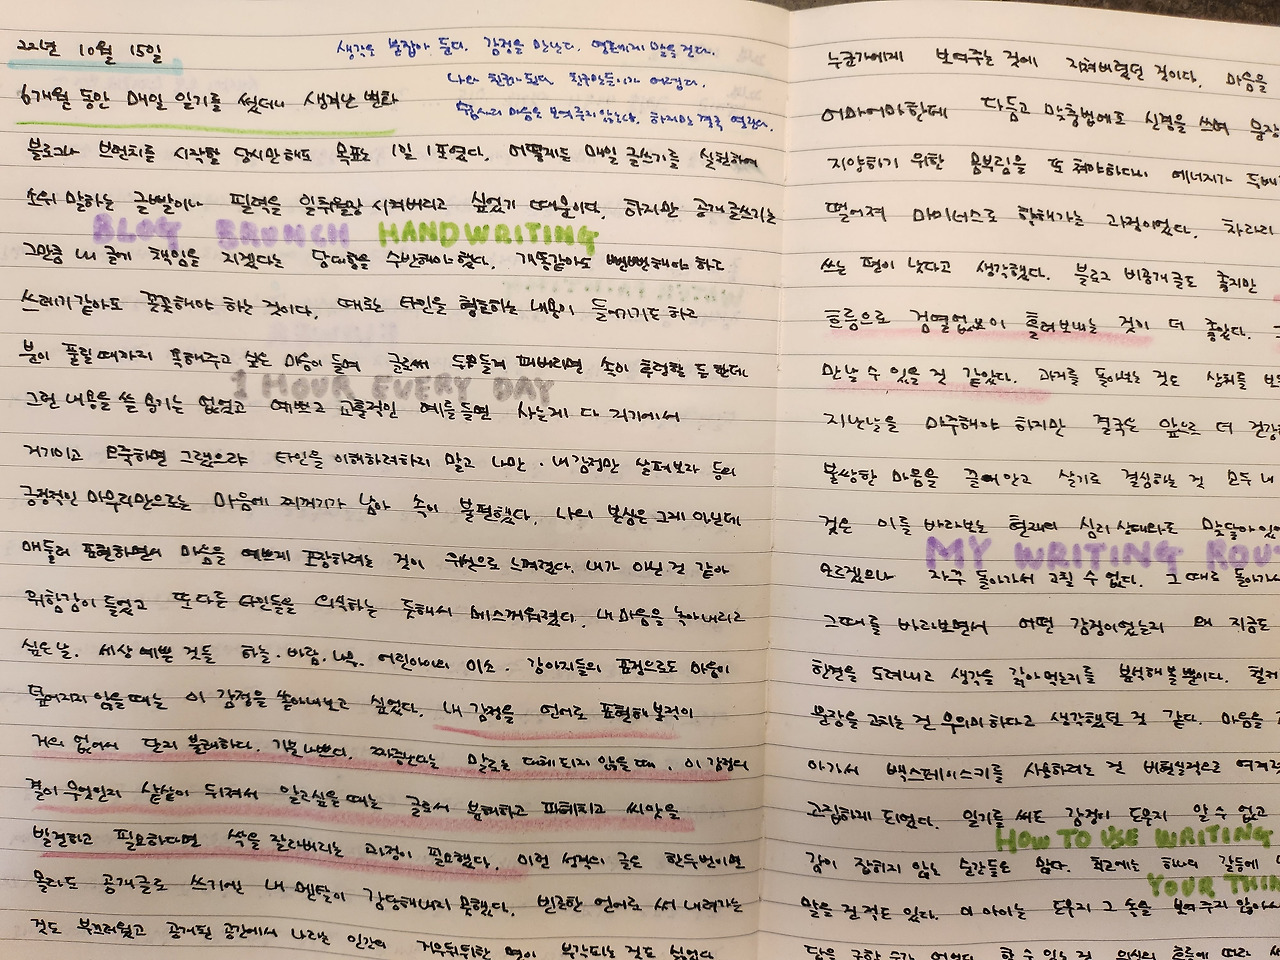 22년 10월 15일
생각을 붙잡아 둔다. 감정을 만난다. 영혼에게 말을 건다.
나와 친구가 된다. 친구 만들기가 어렵다.
마음을 보여주지 않는다. 하지만 결국 열린다.
6개월 동안 매일 일기를 썼더니 생겨난 변화
블로그나 브런치를 시작할 당시만해도 목표는 1일 1포였다. 어떻게든 매일 글쓰기를 실천하여
소위 말하는 글빨이나 필력을 일취월장 시켜버리고 싶었기 때문이다. 하지만 공개글쓰기는
BLOG BRUNCH HANDWRITING
그만큼 내 글에 책임을 지겠다는 당대함을 수반해야 했다. 개똥같아도 뻔뻔해야 하고
쓰레기 같아도 꼿꼿해야 하는 것이다. 때로는 타인을 혐오하는 내용이 들어가기도 하고
분이 풀릴 때까지 욕해주고 싶은 마음이 들며 글로써 두들겨 패버리면 속이 후련할 듯 한데
1 HOUR EVERY DAY
그런 내용을 쓸 용기는 없었고 예쁘고 교훈적인 예를 들면 사는게 다 거기에서
거기이고 오죽하면 그랬으랴 타인을 이해하려하지 말고 나만·내 감정만 살펴보자 등의
긍정적인 마무리만으로는 마음에 찌꺼기가 남아 속이 불편했다. 나의 본심은 그게 아닌데
에둘러 표현하면서 마음을 예쁘게 포장하려는 것이 위선으로 느껴졌다. 내가 아닌 것 같아
위화감이 들었고 또 다른 타인들을 의식하는 듯해서 메스꺼워졌다. 내 마음을 녹아내리고
싶은 날. 세상 예쁜 것들 하늘·바람·나무. 어린아이의 미소. 강아지들의 표정으로도 마음이
덮어지지 않을 때는 이 감정을 쏟아내보고 싶었다. 내 감정을 언어로 표현해 본적이
거의 없어서 단지 불쾌하다. 기분 나쁘다. 짜증난다는 말로는 대체 되지 않을 때, 이 감정의
결이 무엇인지 샅샅이 뒤져서 알고싶을 때는 글로써 분해하고 파헤치고 씨앗을
발견하고 필요하다면 싹을 잘라버리는 과정이 필요했다. 이런 성격의 글은 한두번이면
몰라도 공개글로 쓰기엔 내 멘탈이 감당해내지 못했다. 빈곤한 언어로 써 내려가는
것도 부끄러웠고 공개된 공간에서 나라는 인간의 거무튀튀한 면이 부각되는 것도 싫었다
누군가에게 보여주는 것에 지쳐버렸던 것이다. 마음을
어마어마한데 다듬고 맞춤법에도 신경을 쓰며 문장
지양하기 위한 몸부림을 또 쳐야하다니 에너지가 두배
떨어져 마이너스로 향해가는 과정이었다. 차라리
쓰는 편이 낫다고 생각했다. 블로그 비공개 글도 좋지만
흐름으로 검열없이 흘려보내는 것이 더 좋았다.
만날 수 있을 것 같았다. 과거를 돌아보는 것도 상처를 보
지난날을 마주해야 하지만 결국은 앞으로 더 건강
불쌍한 마음을 끌어안고 살기로 결심하는 것 모두 내
것은 이를 바라보는 현재의 심리상태와도 맞닿아있
MY WRITING ROU
모르겠으나 자주 돌아가서 고칠 수 없다. 그 때로 돌아가
그때를 바라보면서 어떤 감정이었는지 왜 지금도
한켠을 도려내고 생각을 갉아먹는지를 분석해 볼 뿐이다.
문장을 고치는 건 무의미하다고 생각했던 것 같다. 마음을
아가서 백스페이스키를 사용하려는 건 비현실적으로 여겨
고집하게 되었다. 일기를 써도 감정이 도무지 알 수 없고
HOW TO USE WRITING
감이 잡히지 않는 순간들은 많다. 최근에는 하나의 갈등에
YOUR THIN
말을 걸 적도 있다. 이 아이는 도무지 그 속을 보여주지 않아서
답을 구할 수가 없었다. 할 수 있는 건 의식의 흐름에 따라